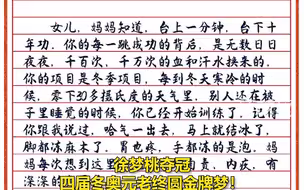 女儿，妈妈知道，台上一分钟，台下十
年功，你的每一跳成功的背后，是无数日日
夜夜，千百次，千万次的血和汗水换来的。
你的项目是冬季项目，每到冬天寒冷的时
候，零下30多摄氏度的天气里，别人还在被
子里睡觉的时候，你已经开始训练了，记得
你跟我说过，哈气一出去，马上就结冰了，
脚都冻麻木了，胃也疼，手都冻的是泡，妈
妈每次想到这里
责，内疚，有
深深的
徐梦桃夺冠，
四届冬奥元老终圆金牌梦！